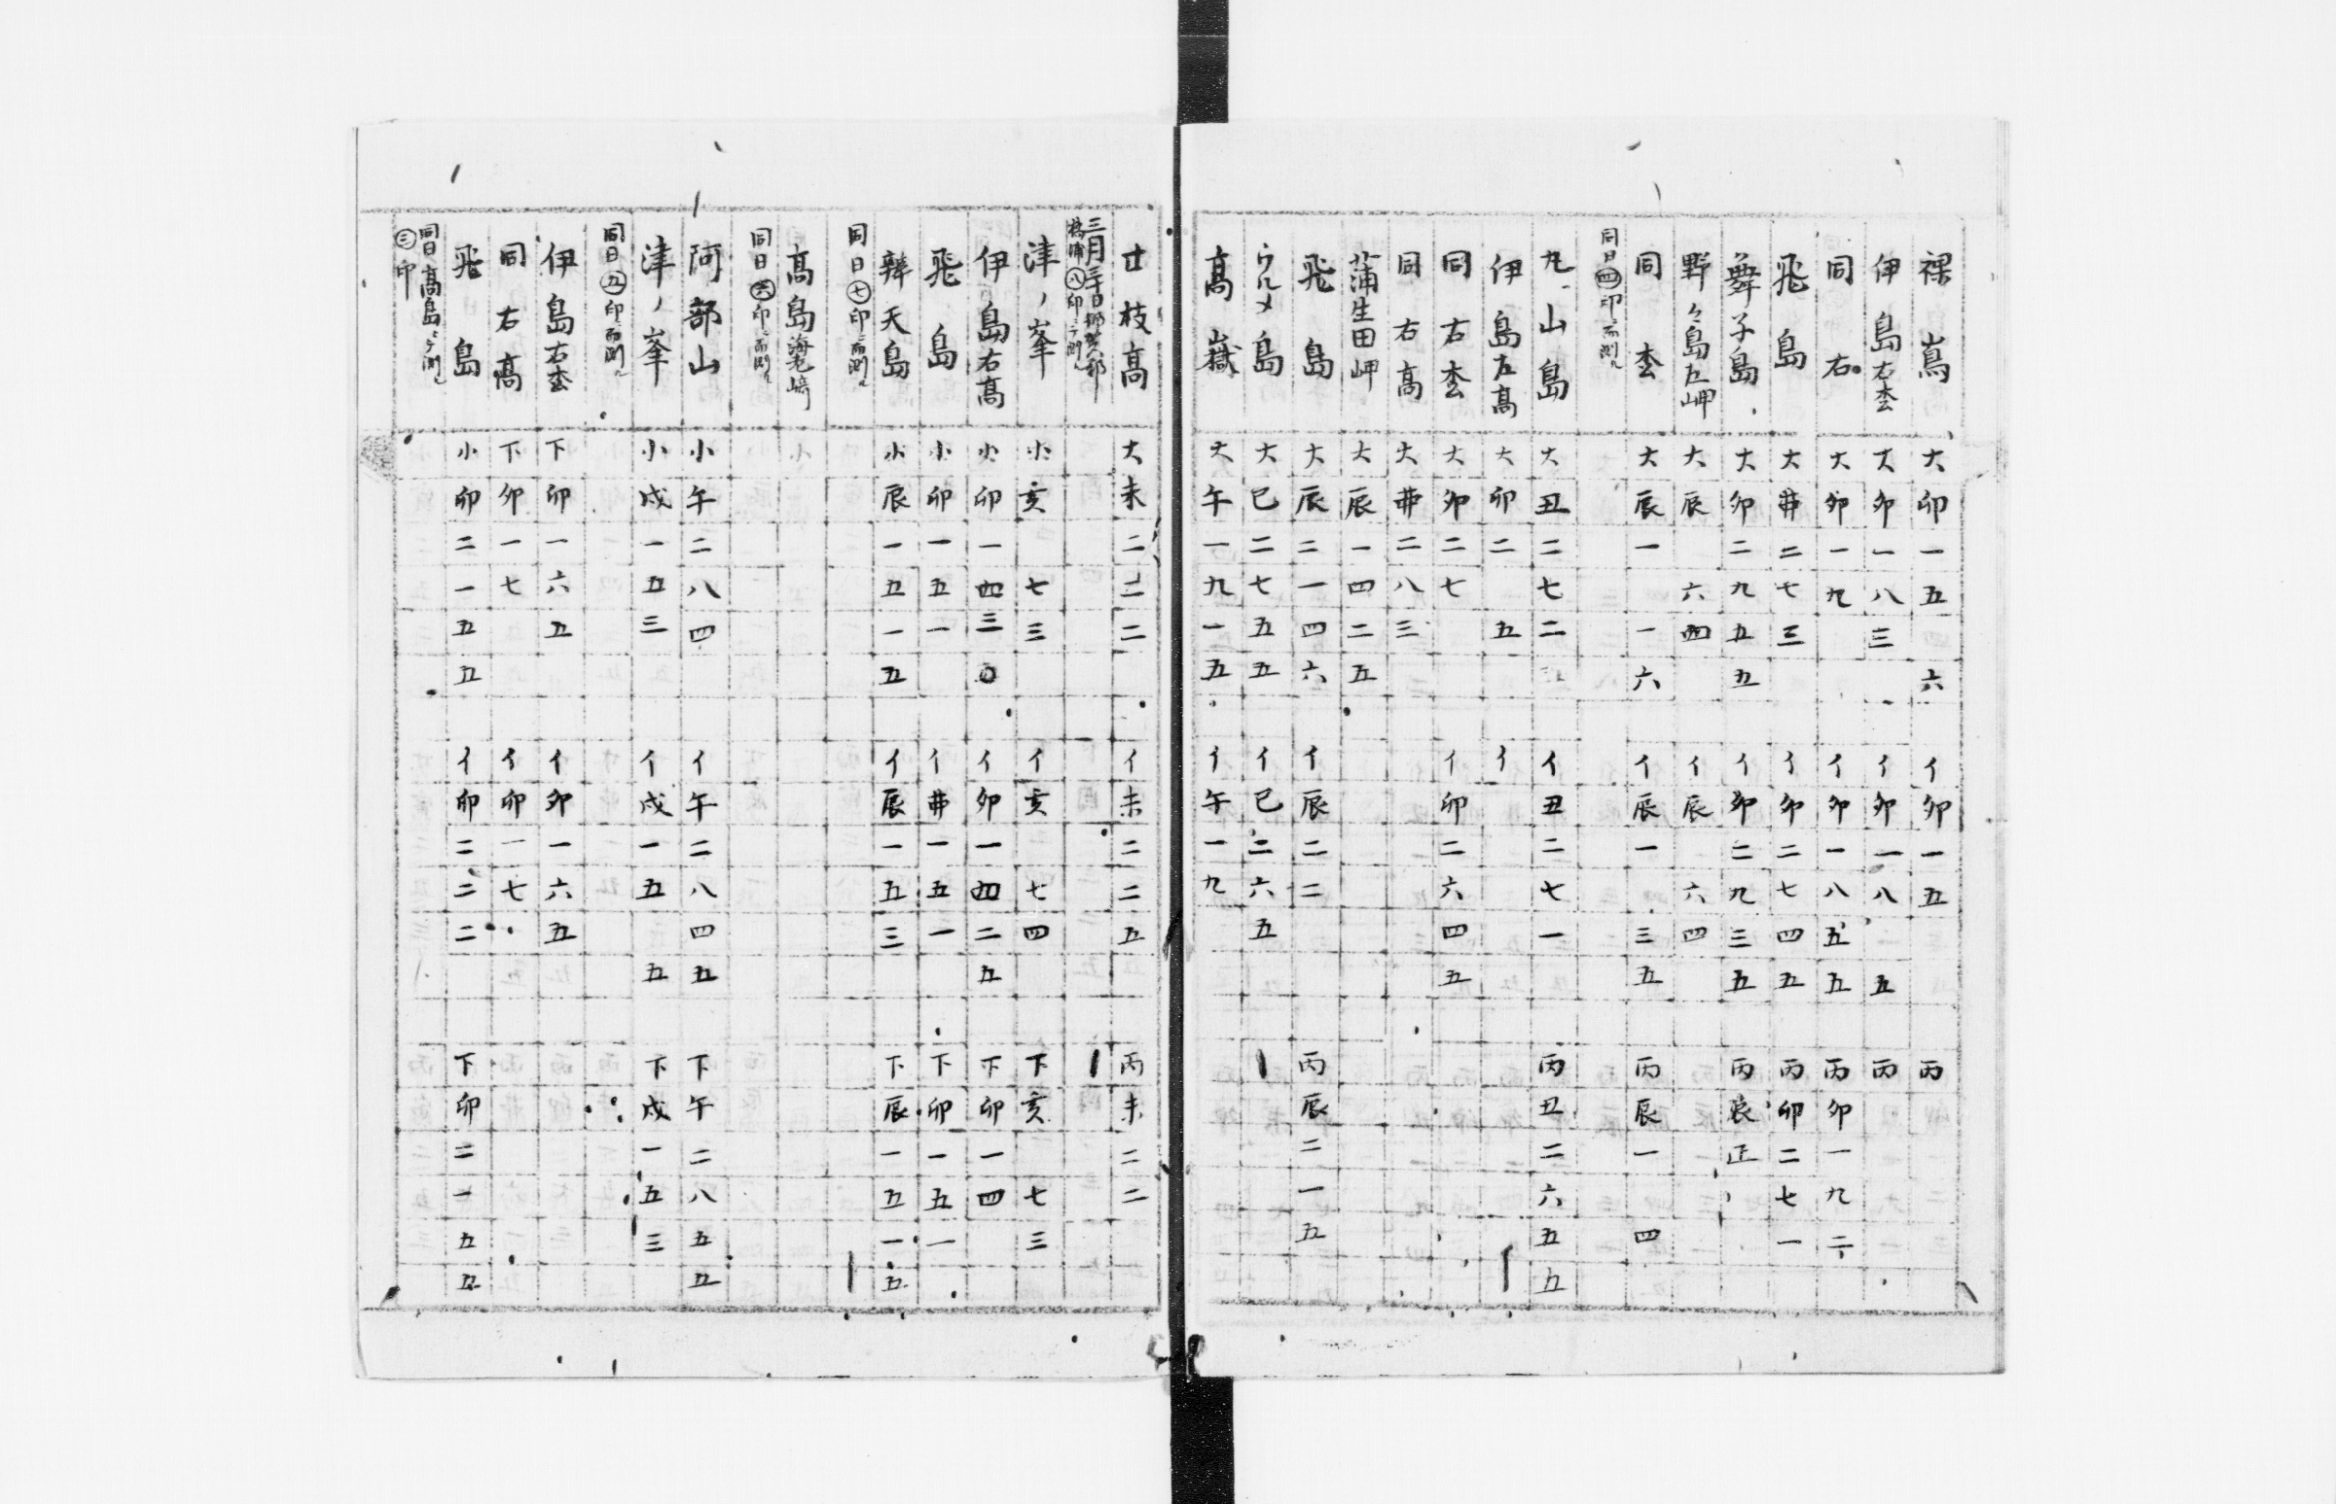 裸嶌 大卯一五 六 イ卯一五 丙
伊島右杢 大卯一八三 イ卯一八 五 丙
同右 大卯一九 イ卯一八五五 丙卯一九二
飛島 大卯二七三 イ卯二七四五 丙卯二七一
舞子島 大卯二九五五 イ卯二九三五 丙辰正
野々島左岬 大辰 六四 イ辰 六四
同杢 大辰一 一六 イ辰一 三五 丙辰一 四
同日四印ニ而測ル
丸山島 大丑二七二 イ丑二七一 丙丑二六五五
伊島左高 大卯二 五 イ
同右杢 大卯二七 イ卯二六四五
同右高 大卯二八三
蒲生田岬 大辰一四二五
飛島 大辰二一四六 イ辰二二 丙辰二一五
ウルメ島 大巳二七五五 イ巳二六五
高嶽 大午一九一五 イ午一九
廿枝高 大未二二二 イ未二二五 丙未二二
津ノ峯 小亥 七三 イ亥 七四 下亥 七三
伊島右高 小卯一四三〇 イ卯一四二五 下卯一四
飛島 小卯一五一 イ卯一五一 下卯一五一
辨天島 小辰一五一五 イ辰一五三 下辰一五一五
同日七印ニ而測ル
高島海老崎 小
同日六印ニ而測ル
阿部山 小午二八四 イ午二八四五 下午二八五五
津ノ峯 小戌一五三 イ戌一五 五 下戌一五三
同日五印ニ而測ル
伊島右杢 下卯一六五 イ卯一六五
同右高 下卯一七 イ卯一七
飛島 小卯二一五五 イ卯二二二 下卯二一五五
同日高島ニテ測ル
三印